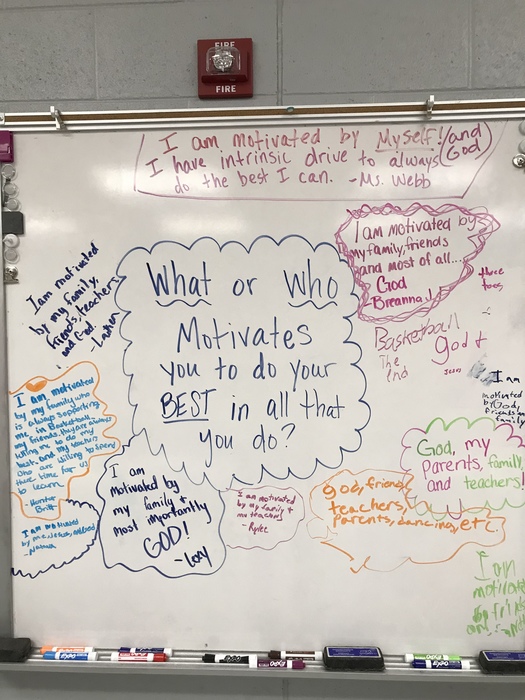 FIRE
FIRE
I am motivated by Myself! (and God)
I have intrinsic drive to always
do the best I can. -Ms. Webb
I am motivated by
my family, friends
and most of all...
God
Breanna!
I am motivated
by my family,
friends, teachers,
and God.
What or Who
Motivates
you to do your
BEST in all that
you do?
Basketball
The
End
God +
I am
motivated
by God,
friends
family
I am motivated
by my family who
is always supporting
me in Basketball.
my friends, they are always
telling me to do my
best. and my teachers
who are willing to spend
there time for us
to learn.
Hunter
Britt
God, my
Parents, family
and teachers!
I am
motivated by
my family +
most importantly
GOD!
-Lory
I am motivated
by my family +
my teachers
-Rylee
God, friends
teachers,
Parents, dancing, etc.
I am motivated
by me, Jesus,
I am
motivated
by
EXPO
EXPO
EXPO
EXPO